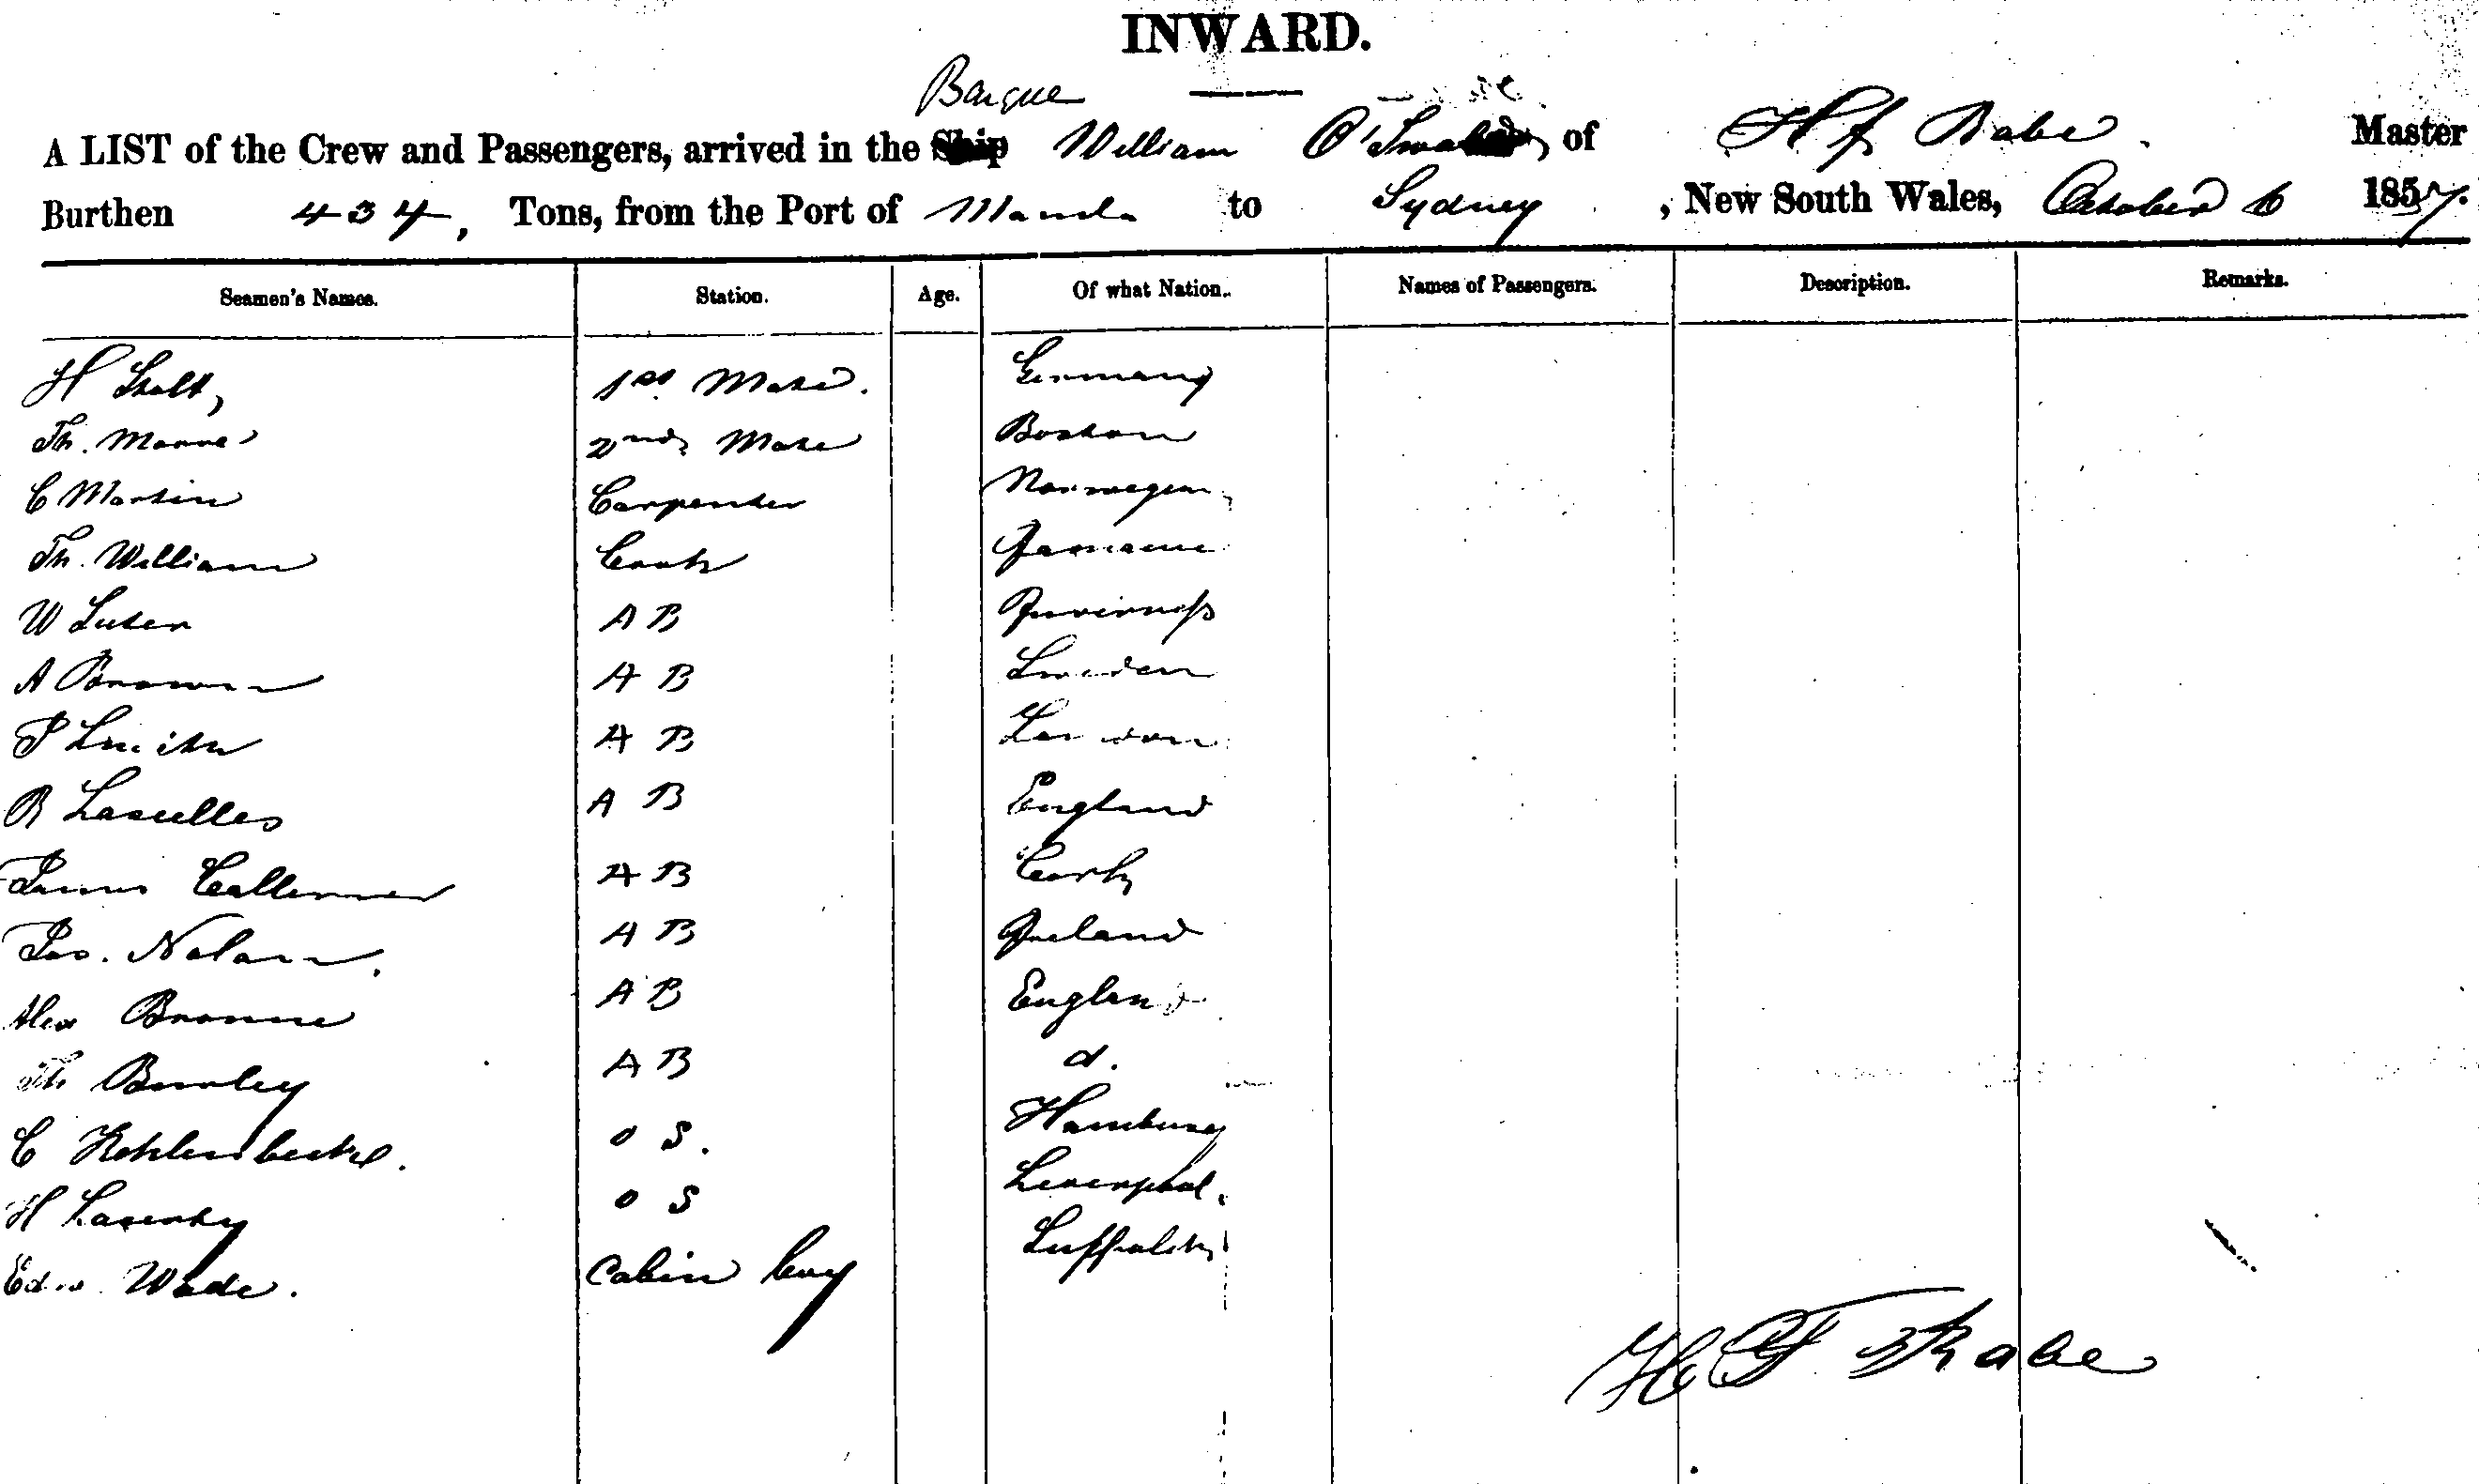 INWARD.
Barque
A LIST of the Crew and Passengers, arrived in the Ship William O'Swald, of H J Babe. Master
Burthen 434, Tons, from the Port of Manila to Sydney, New South Wales, October 6 1857.
Seamen's Names. Station. Age. Of what Nation. Names of Passengers. Description. Remarks.
H 1st Mate. Germany
Th. 2nd Mate Boston
C Martin Carpenter Norwegen
Th. William Cook
W Suter A B Inverness
A Brown A B Sweden
P Smith A B London
R Lascelles A B England
James A B Cork
Jas. Nolan. A B Ireland
Alex Browne A B England
Th Burley A B d.
C O S. Hamburg
H Lasenby O S Liverpool.
Edw. Wade. Cabin boy Suffolk
H Babe